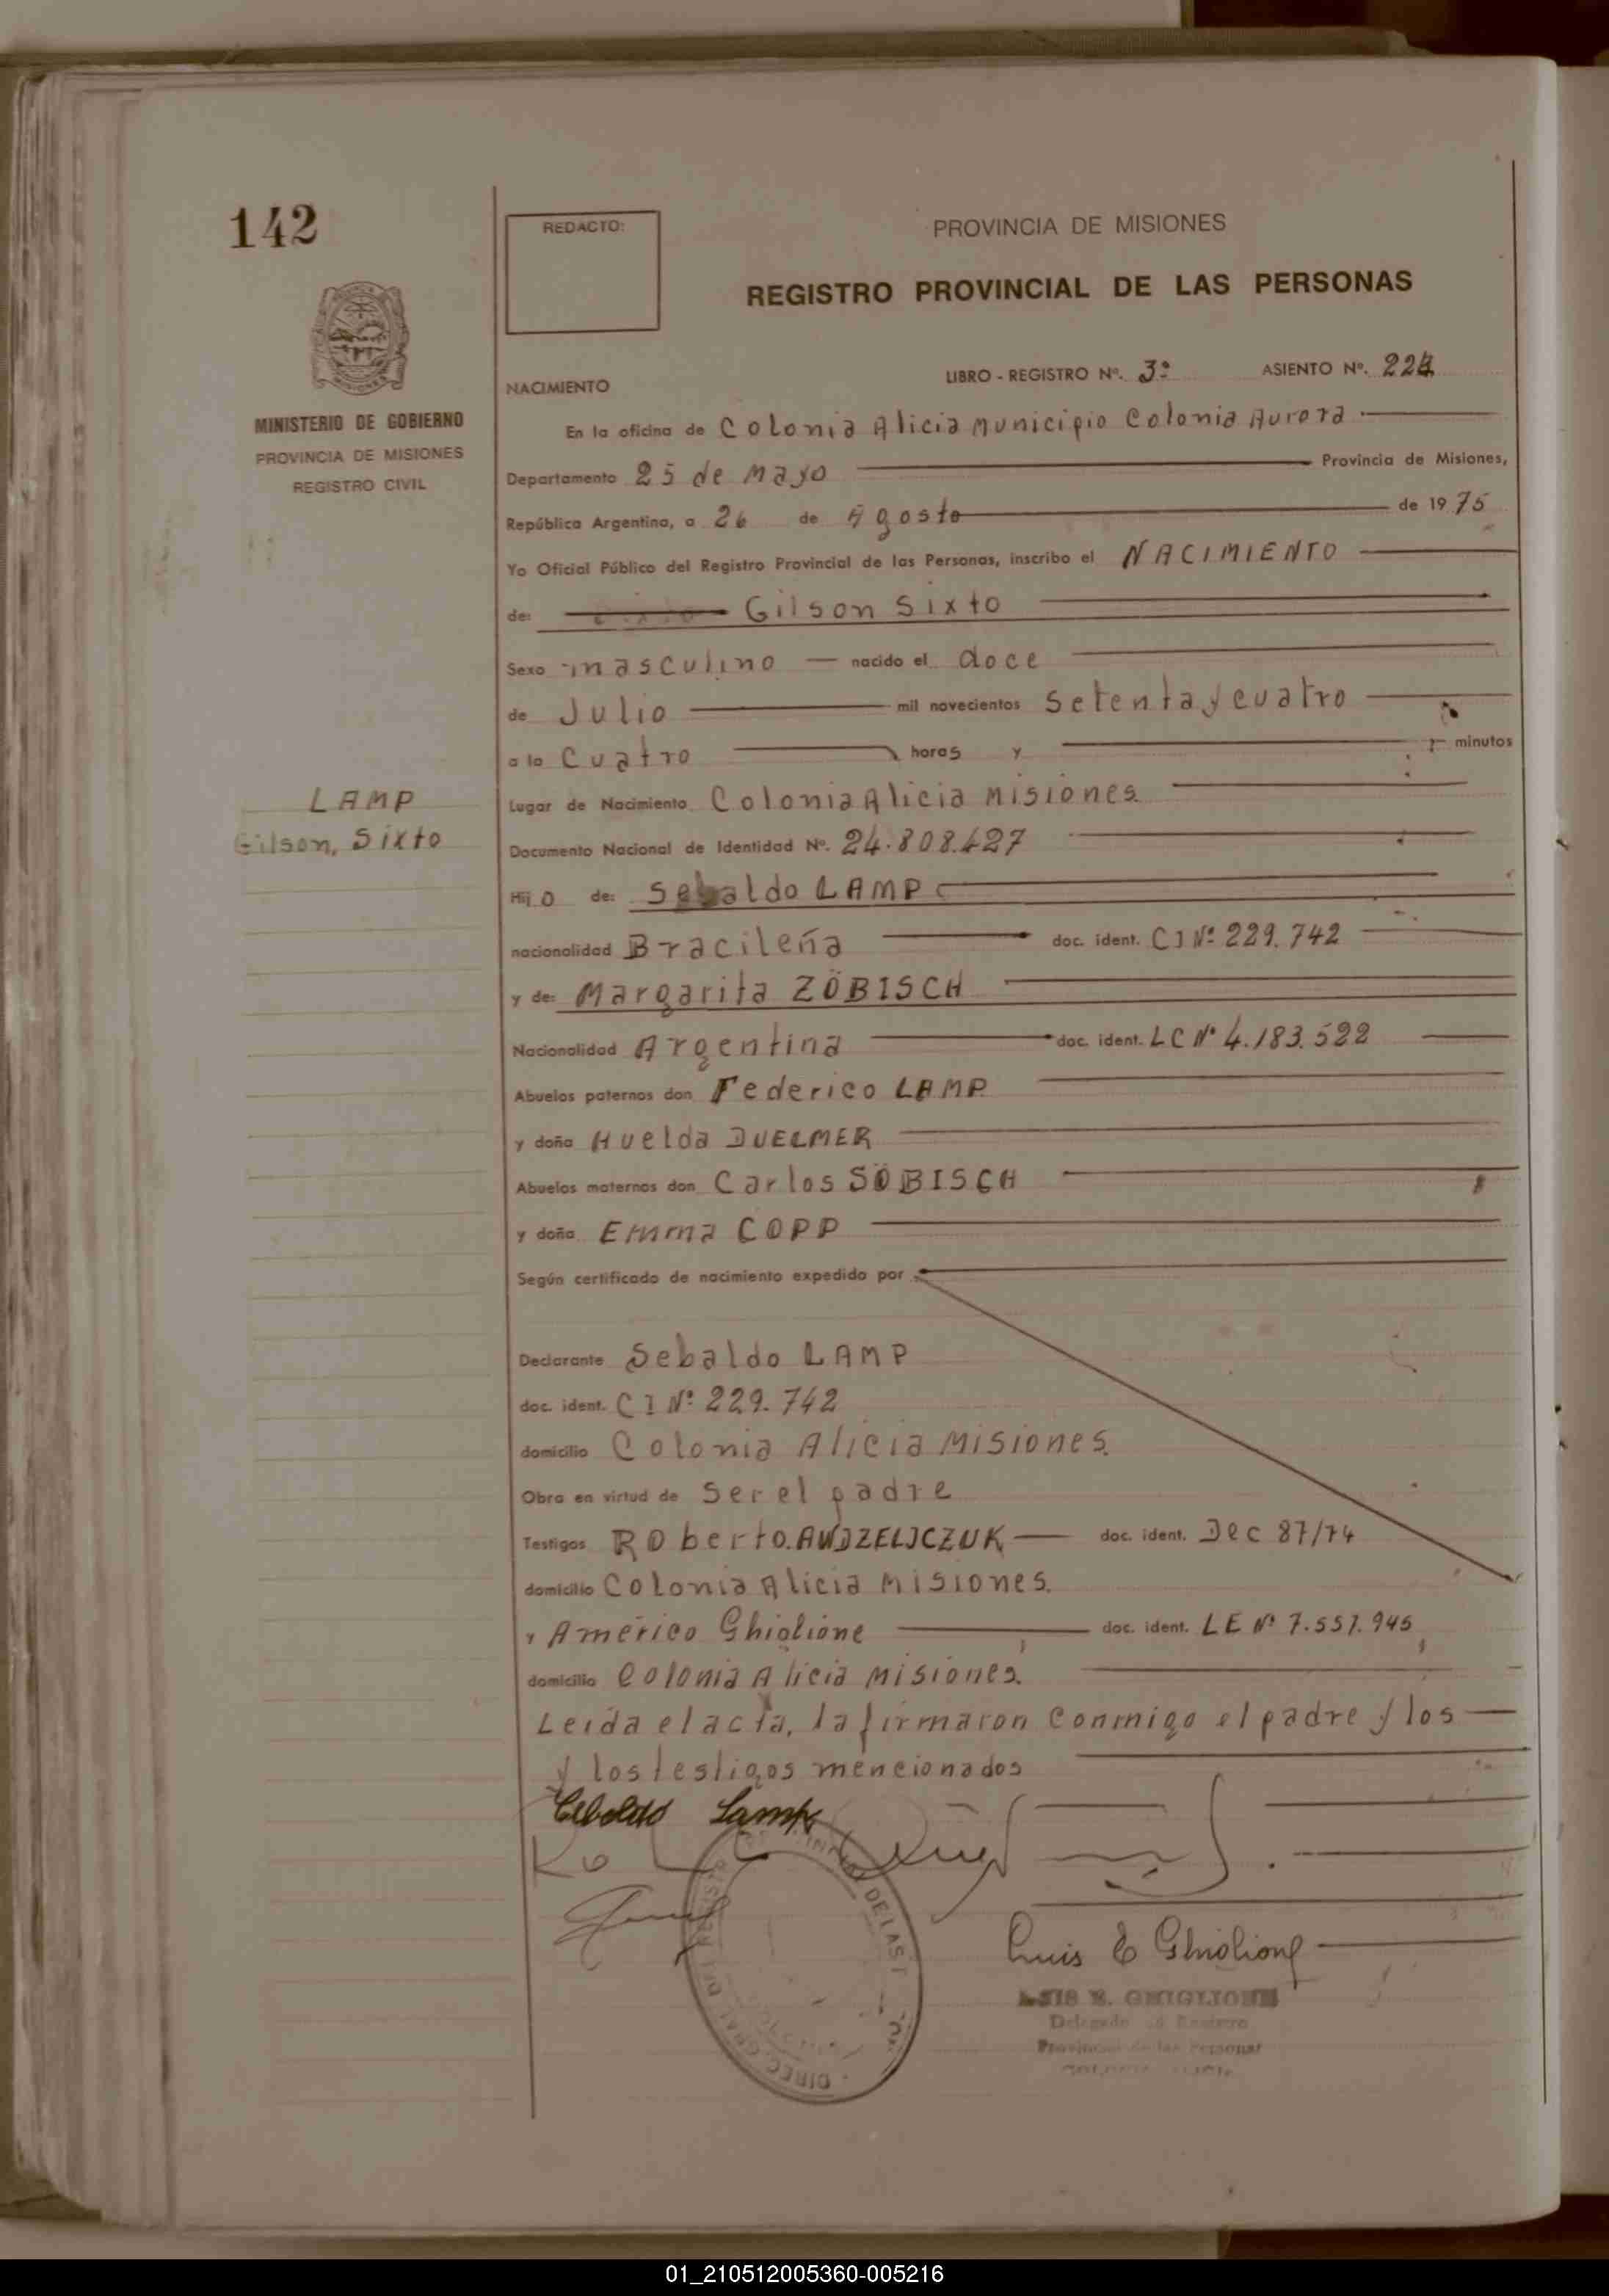 142
REDACTO:
PROVINCIA DE MISIONES
REGISTRO PROVINCIAL DE LAS PERSONAS
MINISTERIO DE GOBIERNO
PROVINCIA DE MISIONES
REGISTRO CIVIL
NACIMIENTO LIBRO - REGISTRO Nº. 3º ASIENTO Nº. 224
En la oficina de Colonia Alicia Municipio Colonia Aurora
Departamento 25 de Mayo Provincia de Misiones,
República Argentina, a 26 de Agosto de 1975
Yo Oficial Público del Registro Provincial de las Personas, inscribo el NACIMIENTO
de: Gilson Sixto
Sexo masculino nacido el doce
de Julio mil novecientos Setenta y cuatro
a la Cuatro horas y minutos
LAMP
Gilson, Sixto
Lugar de Nacimiento Colonia Alicia Misiones
Documento Nacional de Identidad Nº. 24.808.427
Hijo de: Sebaldo LAMP
nacionalidad Bracileña doc. ident. CI Nº 229.742
y de: Margarita ZÖBISCH
Nacionalidad Argentina doc. ident. LC Nº 4.183.522
Abuelos paternos don Federico LAMP
y doña Huelda DUELMER
Abuelos maternos don Carlos SÖBISCH
y doña Emma COPP
Según certificado de nacimiento expedido por
Declarante Sebaldo LAMP
doc. ident. CI Nº 229.742
domicilio Colonia Alicia Misiones.
Obra en virtud de Ser el padre
Testigos Roberto. AWDZEIJCZUK doc. ident. Dec 87/74
domicilio Colonia Alicia Misiones.
y Américo Ghiglione doc. ident. LE Nº 7.557.945
domicilio Colonia Alicia Misiones.
Leída el acta, la firmaron conmigo el padre y los
y los testigos mencionados
Cebaldo Lamp
Luis E Ghiglione
LUIS E. GHIGLIONE
Delegado del Registro
Provincial de las Personas
01_210512005360-005216